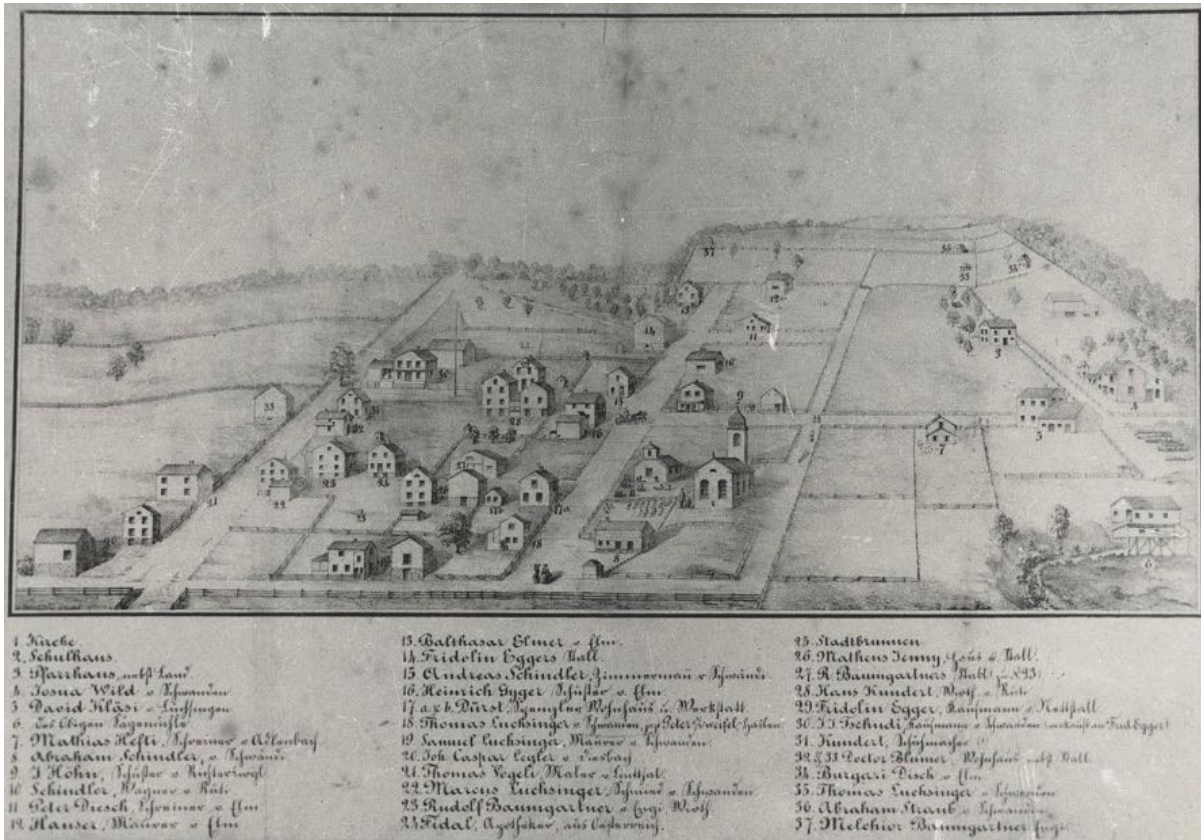 1. Kirche.
2. Schulhaus
3. Pfarrhaus, nebst Land.
4. Josua Wild v. Schwanden
5. David Kläsi v. Luchsingen
6. des Obigen Sägemühle
7. Mathias Hefti, Schreiner v. Adlenbach
8. Abraham Schindler, v. Schwanden
9. J. Höhn, Schüster v.
10. Schindler, Wagner v. Rüti
11. Peter Diesch, Schreiner v. Elm
12. Hauser, Maurer v. Elm
13. Balthasar Elmer v. Elm.
14. Fridolin Eggers Stall.
15. Andreas Schindler, Zimmermann v. Schwanden
16. Heinrich Gyger Schüster v. Elm.
17. a. & b. Dürst, Spengler Wohnhaus u. Werkstatt.
18. Thomas Luchsinger v. Schwanden, Peter Zweifel, Haslen
19. Samuel Luchsinger, Maurer v. Schwanden.
20. Joh. Caspar Legler v. Diesbach
21. Thomas Vogeli, Maler v. Linthal.
22. Marcus Luchsinger, Schmied v. Schwanden.
23. Rudolf Baumgartner v. Engi Wirth.
24. Fidal, Apotheker, aus Oesterreich.
25. Stadtbrunnen
26. Matheus Jenny, Haus u. Stall.
27. R. Baumgartners Stall
28. Hans Kundert, Wirth v. Rüti
29. Fridolin Egger, Kaufmann v. Nettstall
30. J. J. Tschudi, Kaufmann v. Schwanden
31. Kundert, Schuhmacher
32. & 33 Doctor Blumer, Wohnhaus nebst Stall.
34. Burgari Disch v. Elm
35. Thomas Luchsinger v. Schwanden
36. Abraham Straub v. Schwanden
37. Melchior Baumgartner Engi